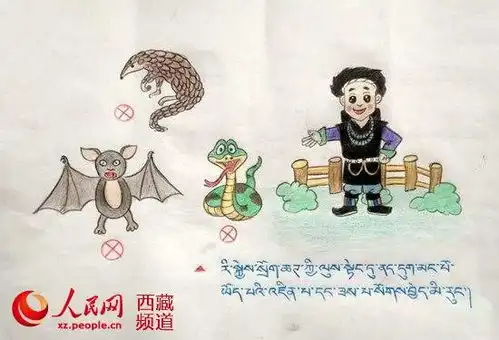 རི་སྐྱེས་སྲོག་ཆགས་ཀྱི་ལུས་སྟེང་དུ་ནད་དུག་མང་པོ་
ཡོད་པའི་འཛིན་པ་དང་ཟས་པ་སོགས་བྱེད་མི་རུང་།
人民网 西藏
xz.people.cn 频道